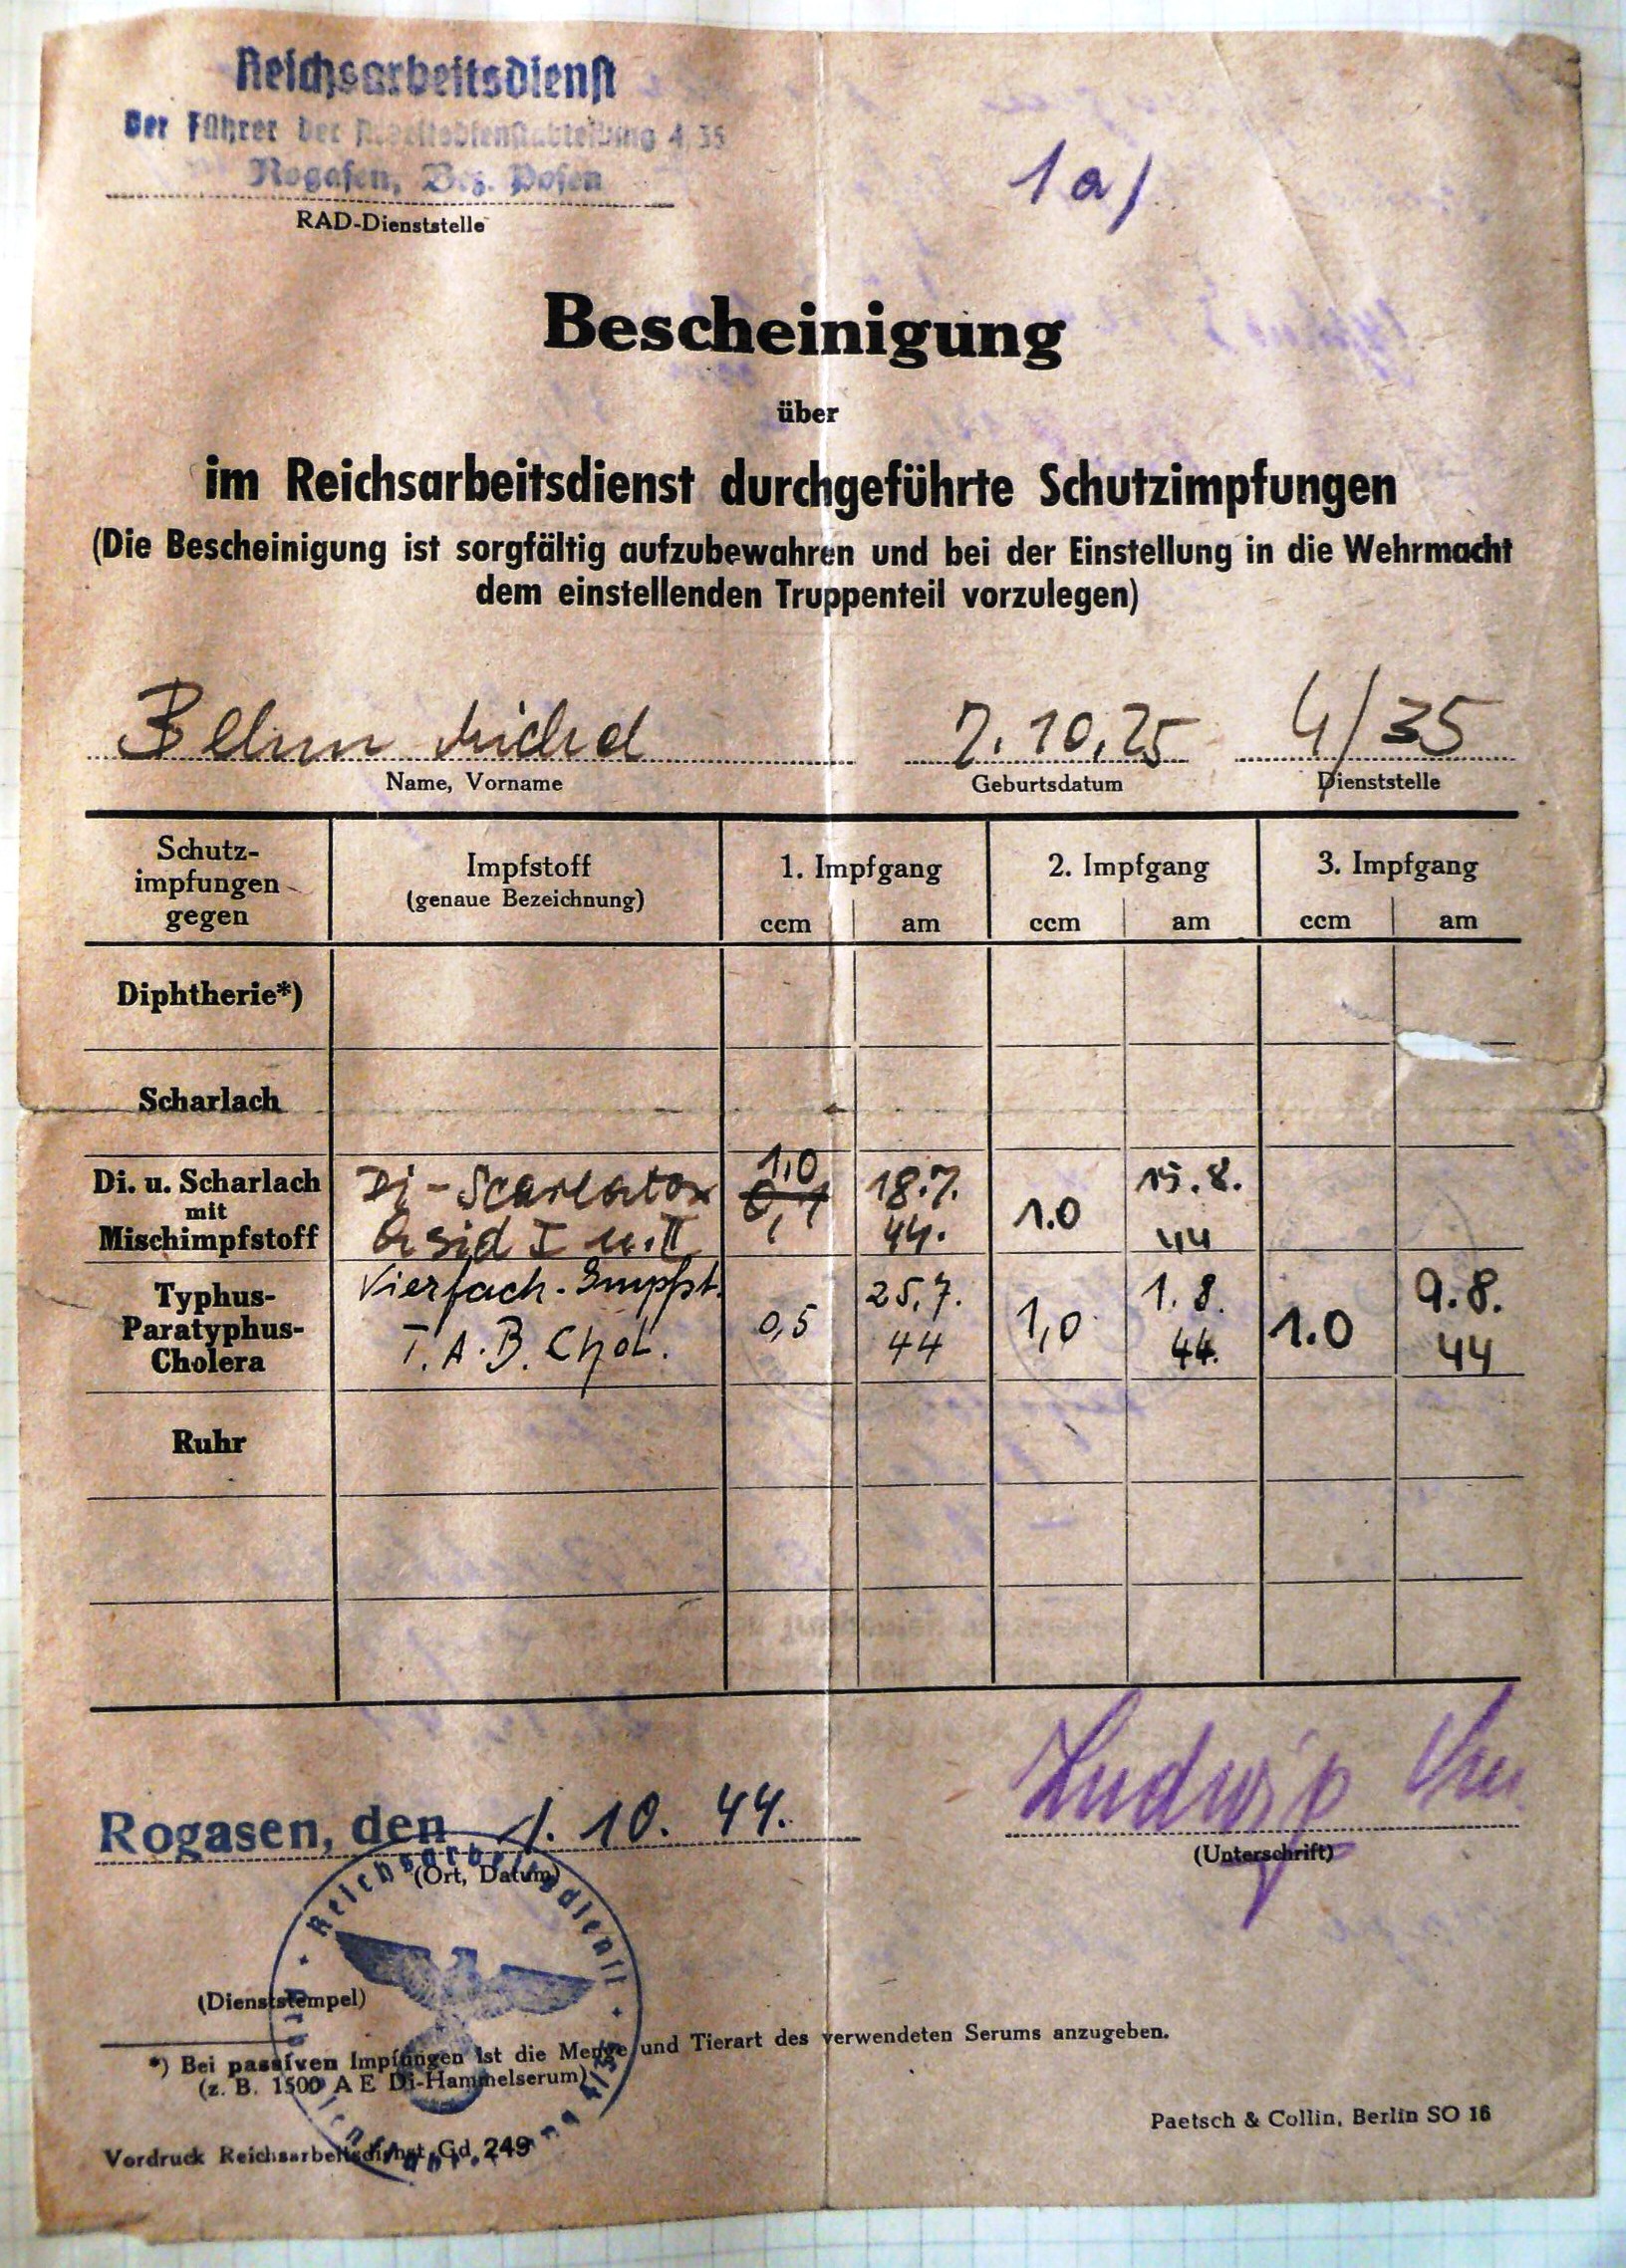 Reichsarbeitsdienst
Der Führer der Arbeitsdienstabteilung 4/35
Rogasen, Bez. Posen
RAD-Dienststelle
1a)
Bescheinigung
über
im Reichsarbeitsdienst durchgeführte Schutzimpfungen
(Die Bescheinigung ist sorgfältig aufzubewahren und bei der Einstellung in die Wehrmacht
dem einstellenden Truppenteil vorzulegen)
Behm Michel 7.10.25 4/35
Name, Vorname Geburtsdatum Dienststelle
Schutz-
impfungen
gegen
Impfstoff
(genaue Bezeichnung)
1. Impfgang 2. Impfgang 3. Impfgang
ccm am ccm am ccm am
Diphtherie*)
Scharlach
Di. u. Scharlach
mit
Mischimpfstoff
Di-Scarlatox
Asid I u. II
1,0
0,1
18.7.
44.
1.0
15.8.
44
Typhus-
Paratyphus-
Cholera
Vierfach-Impfst.
T.A.B. Chol.
0,5
25.7.
44
1,0
1.8.
44.
1.0
9.8.
44
Ruhr
Rogasen, den 1.10.44.
(Ort, Datum)
Ludwig
(Unterschrift)
Reichsarbeitsdienst
(Dienststempel)
*) Bei passiven Impfungen ist die Menge und Tierart des verwendeten Serums anzugeben.
(z. B. 1500 A E Di-Hammelserum)
Paetsch & Collin, Berlin SO 16
Vordruck Reichsarbeitsdienst Gd. 249